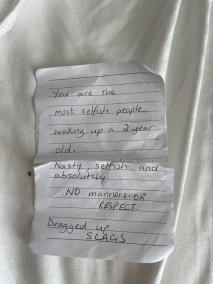 You are the
most selfish people,
waking up a 2 year
old.
Nasty, selfish and
absolutely
NO manners OR
RESPECT.
Dragged up
SCAGS